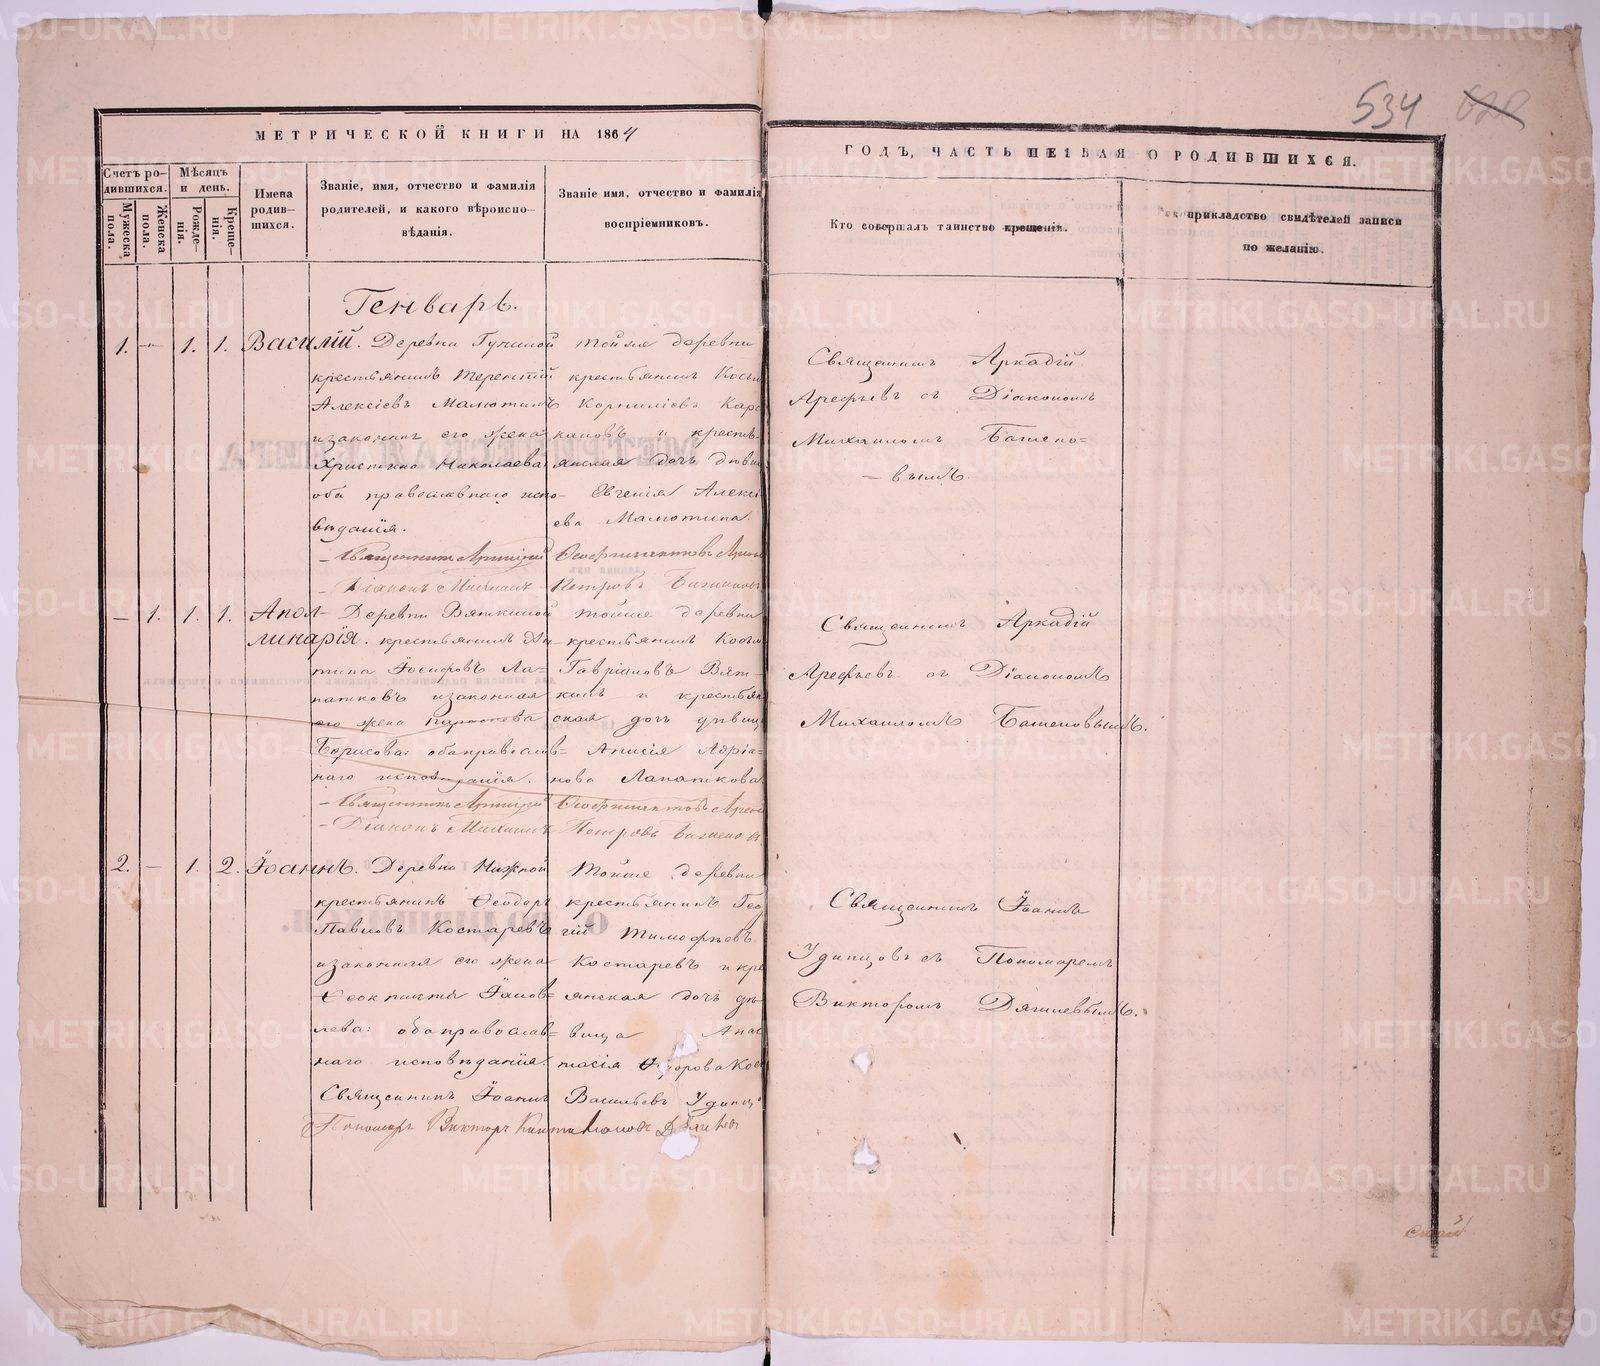 534
МЕТРИЧЕСКОЙ КНИГИ НА 1864
ГОДЪ, ЧАСТЬ ПЕРВАЯ О РОДИВШИХСЯ.
Счетъ ро-
дившихся.
Мужеска
пола.
Женска
пола.
Мѣсяцъ
и день.
Рожде-
нія.
Креще-
нія.
Имена
родив-
шихся.
Званіе, имя, отчество и фамилія
родителей, и какого вѣроиспо-
вѣданія.
Званіе имя, отчество и фамилія
воспріемниковъ.
Кто совершалъ таинство крещенія.
прикладство свидѣтелей записи
по желанію.
Генварь.
1. — 1. 1. Василій.
Деревни Гучиной
крестьянинъ Терентій
Алексіевъ Малютинъ
изаконная его жена
Христина Николаева
оба православнаго испо-
вѣданія.
тойже деревни
крестьянинъ Косьм
Корниліевъ Кар
кановъ и крестья-
янская дочь дѣви
Евгенія Алексі
ева Малютина.
Священникъ Аркадій
Арефьевъ съ Діакономъ
Михаиломъ Бажено=
=вымъ.
— Священникъ Аркадій
— Діаконъ Михаилъ Петровъ Баженовъ
— 1. 1. 1. Апол-
линарія.
Деревни Вяткиной
крестьянинъ Ан-
типа Іосифовъ Ла=
патковъ изаконная
его жена
Борисова: обаправослав=
наго исповѣданія.
тойже деревни
крестьянинъ Косьм
Гавріиловъ Вят-
кинъ и крестьян
ская дочь дѣвиц
Анисія Адріа-
нова Лапаткова
Священникъ Аркадій
Арефьевъ съ Діакономъ
Михаиломъ Баженовымъ.
— Священникъ Аркадій
— Діаконъ Михаилъ Петровъ
2. — 1. 2. Іоаннъ.
Деревни Нижной
крестьянинъ Ѳеодоръ
Павловъ Костаревъ
изаконная его жена
Ѳеоктиста
лева: обаправослав=
наго исповѣданія.
тойже деревни
крестьянинъ Гео
гій Тимофѣевъ
Костаревъ и кре
янская дочь дѣ-
вица Анас
тасія
Священникъ Іоаннъ
Удинцовъ съ Пономаремъ
Викторомъ Дягилевымъ.
Священникъ Іоаннъ Васильевъ Удинц
Пономарь Викторъ
METRIKI.GASO-URAL.RU